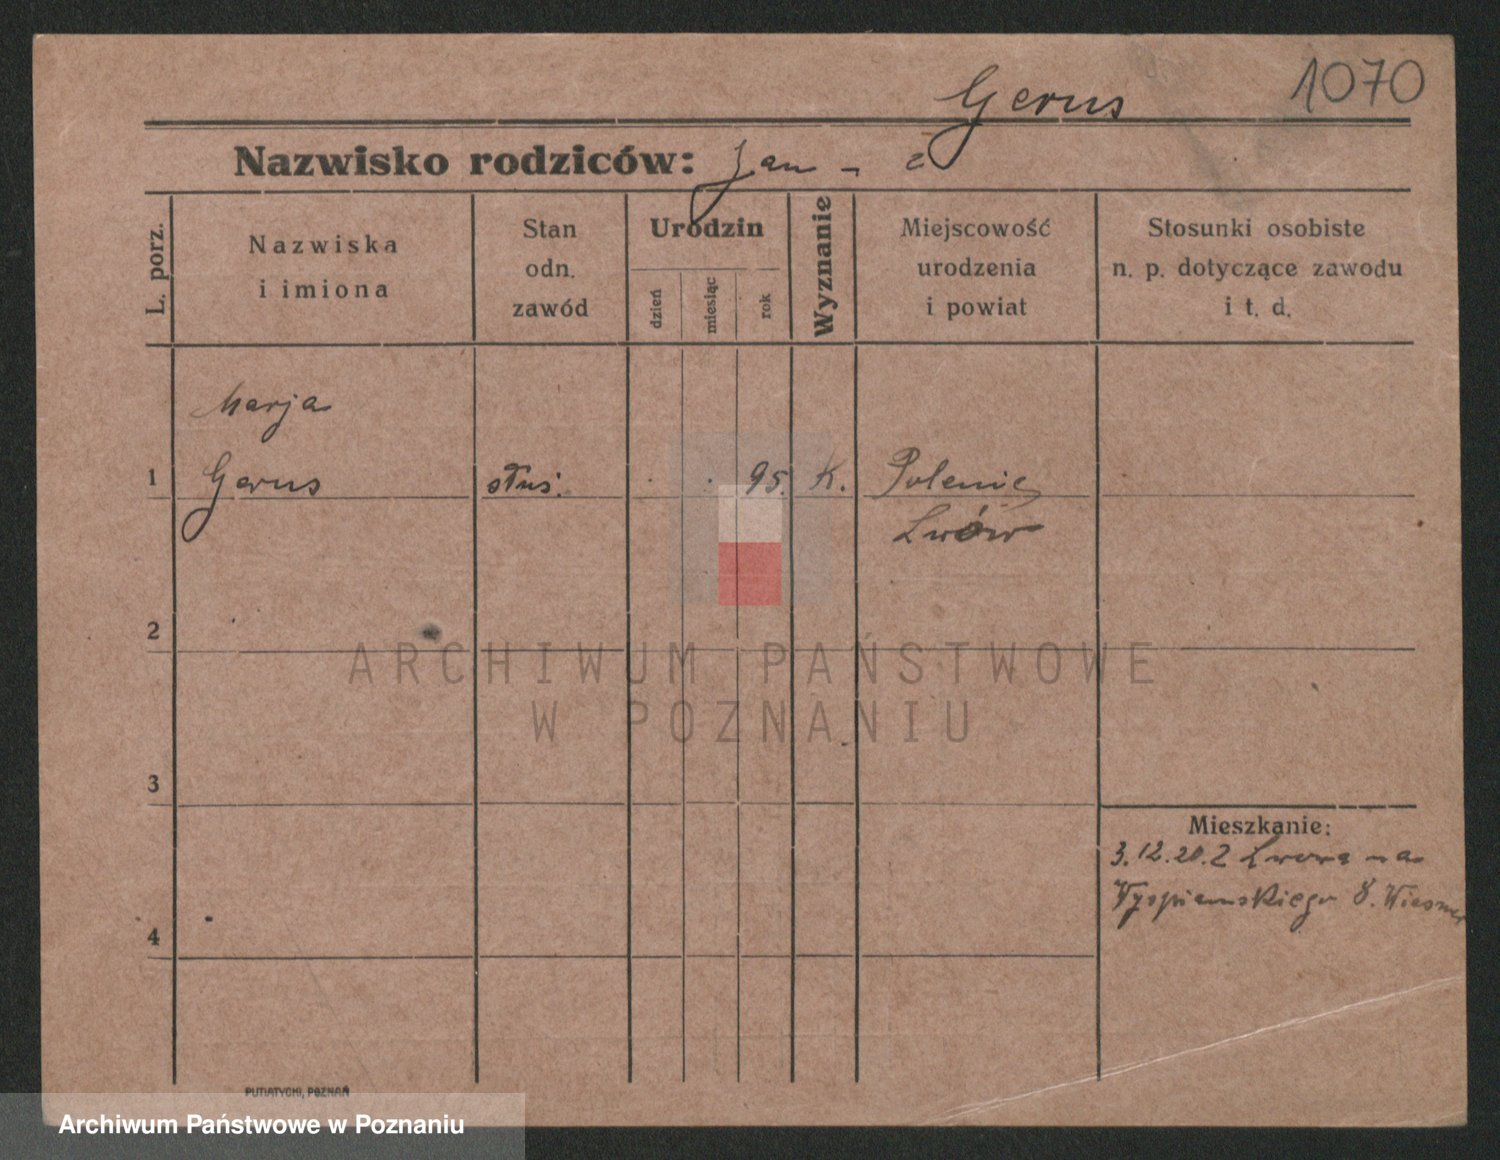 Gerus 1070
Nazwisko rodziców: Jan -
L. porz.
Nazwiska
i imiona
Stan
odn.
zawód
Urodzin
dzień
miesiąc
rok
Wyznanie
Miejscowość
urodzenia
i powiat
Stosunki osobiste
n. p. dotyczące zawodu
i t. d.
Marja
1 Gerus służ. 95. K.
Lwów
2
ARCHIWUM PAŃSTWOWE
W POZNANIU
3
Mieszkanie:
3.12.20. Z Lwowa na
Wyspiańskiego 8.
4
PUTIATYCKI, POZNAŃ
Archiwum Państwowe w Poznaniu